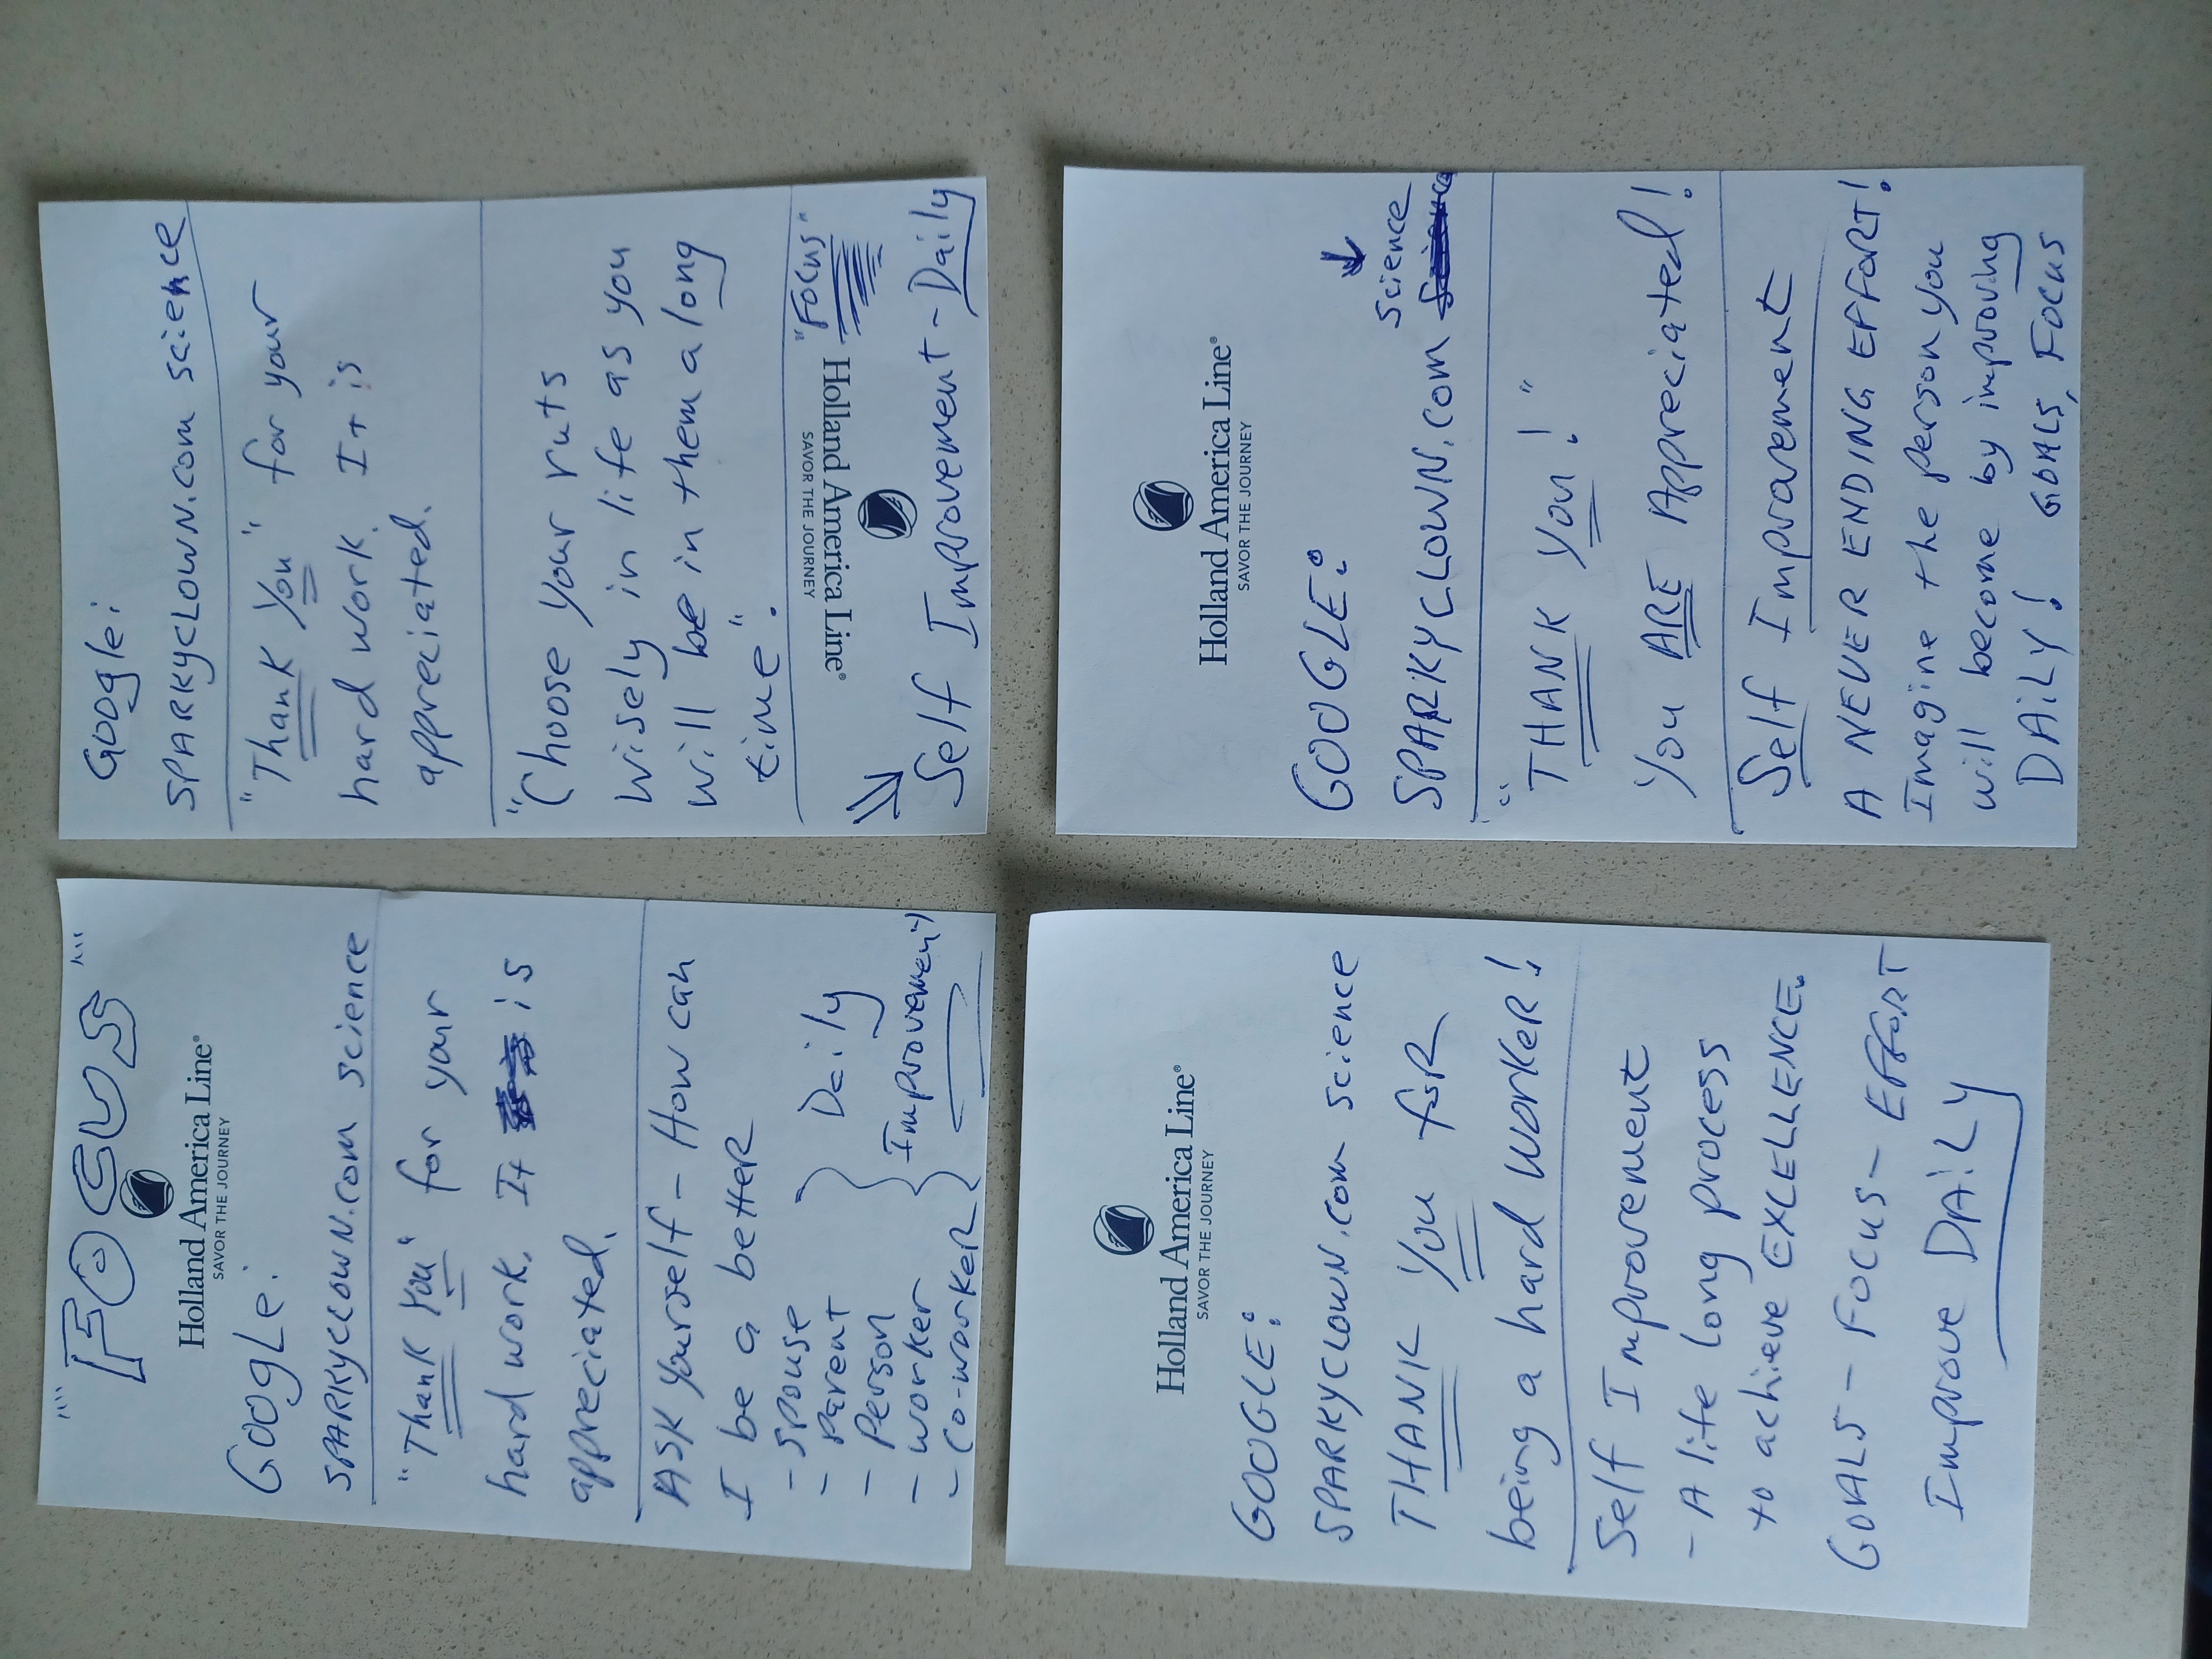 "FOCUS"
Holland America Line®
SAVOR THE JOURNEY
GOOgLe:
SPARKYCLOWN.com science
"Thank You" for your
hard work. It is
appreciated.
ASK Yourself - How can
I be a better
- Spouse
- Parent
- Person
- worker
- Co-worker
Daily
Improvement
GOOgle:
SPARKYCLOWN.com science
"Thank You" for your
hard work. It is
appreciated.
"Choose your ruts
wisely in life as you
will be in them a long
time".
"Focus"
Holland America Line®
SAVOR THE JOURNEY
Self Improvement - Daily
Holland America Line®
SAVOR THE JOURNEY
GOOGLE:
SPARKYCLOWN.com science
THANK You foR
being a hard WORKeR!
Self Improvement
- A life long process
to achieve EXCELLENCE.
GOALS - FOCUS - EFFORT
Improve DAiLY
Holland America Line®
SAVOR THE JOURNEY
GOOGLE:
SPARKYCLOWN.com science
"THANK You!"
You ARE Appreciated!
Self Improvement
A NEVER ENDING EFFORT!
Imagine the person you
will become by improving
DAiLY! GOALS, FOCUS